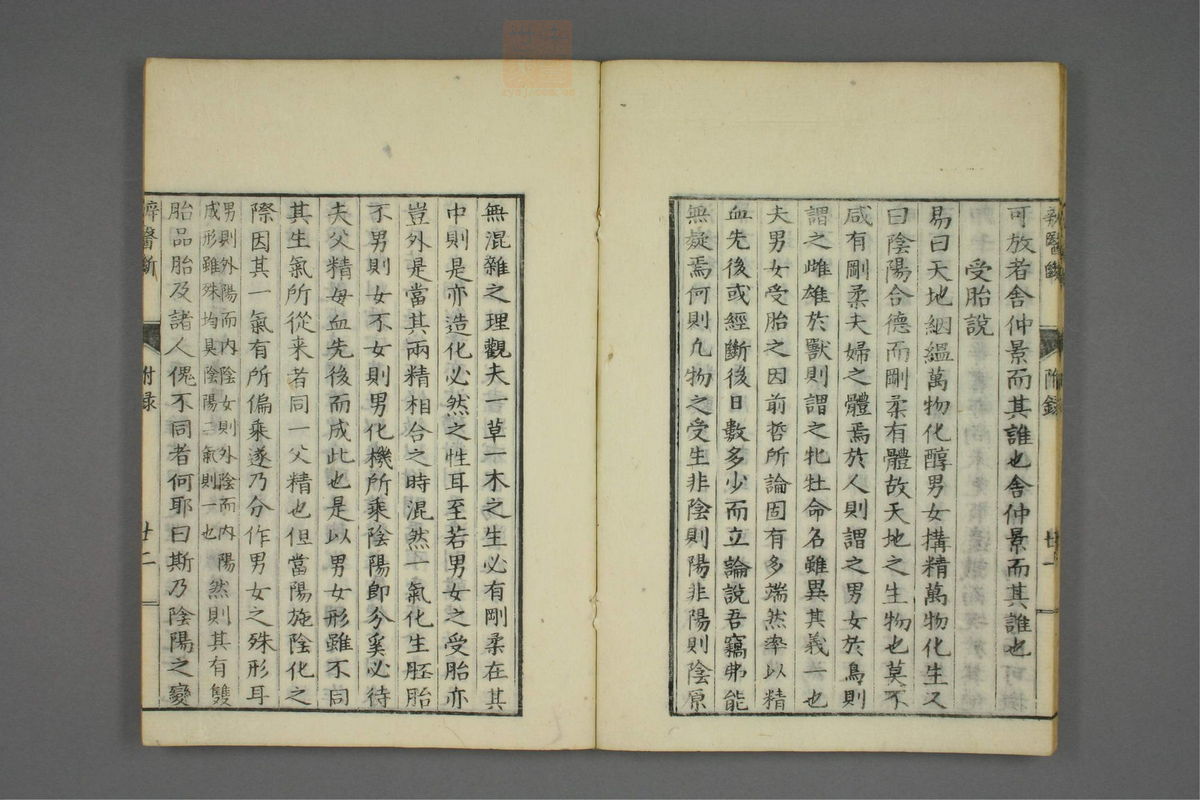 辨醫斷　附錄　廿一
可放者舍仲景而其誰也舍仲景而其誰也
受胎說
易曰天地絪縕萬物化醇男女搆精萬物化生又
曰陰陽合德而剛柔有體故天地之生物也莫不
咸有剛柔夫婦之體焉於人則謂之男女於鳥則
謂之雌雄於獸則謂之牝牡命名雖異其義一也
夫男女受胎之因前哲所論固有多端然率以精
血先後或經斷後日數多少而立論說吾竊弗能
無疑焉何則凡物之受生非陰則陽非陽則陰原
無混雜之理觀夫一草一木之生必有剛柔在其
中則是亦造化必然之性耳至若男女之受胎亦
豈外是當其兩精相合之時混然一氣化生胚胎
不男則女不女則男化機所乘陰陽即分奚必待
夫父精母血先後而成此也是以男女形雖不同
其生氣所從來者同一父精也但當陽施陰化之
際因其一氣有所偏乘遂乃分作男女之殊形耳
男則外陽而內陰女則外陰而內陽然則其有雙
成形雖殊均具陰陽二氣則一也
胎品胎及諸人傀不同者何耶曰斯乃陰陽之變
辨醫斷　附錄　廿二